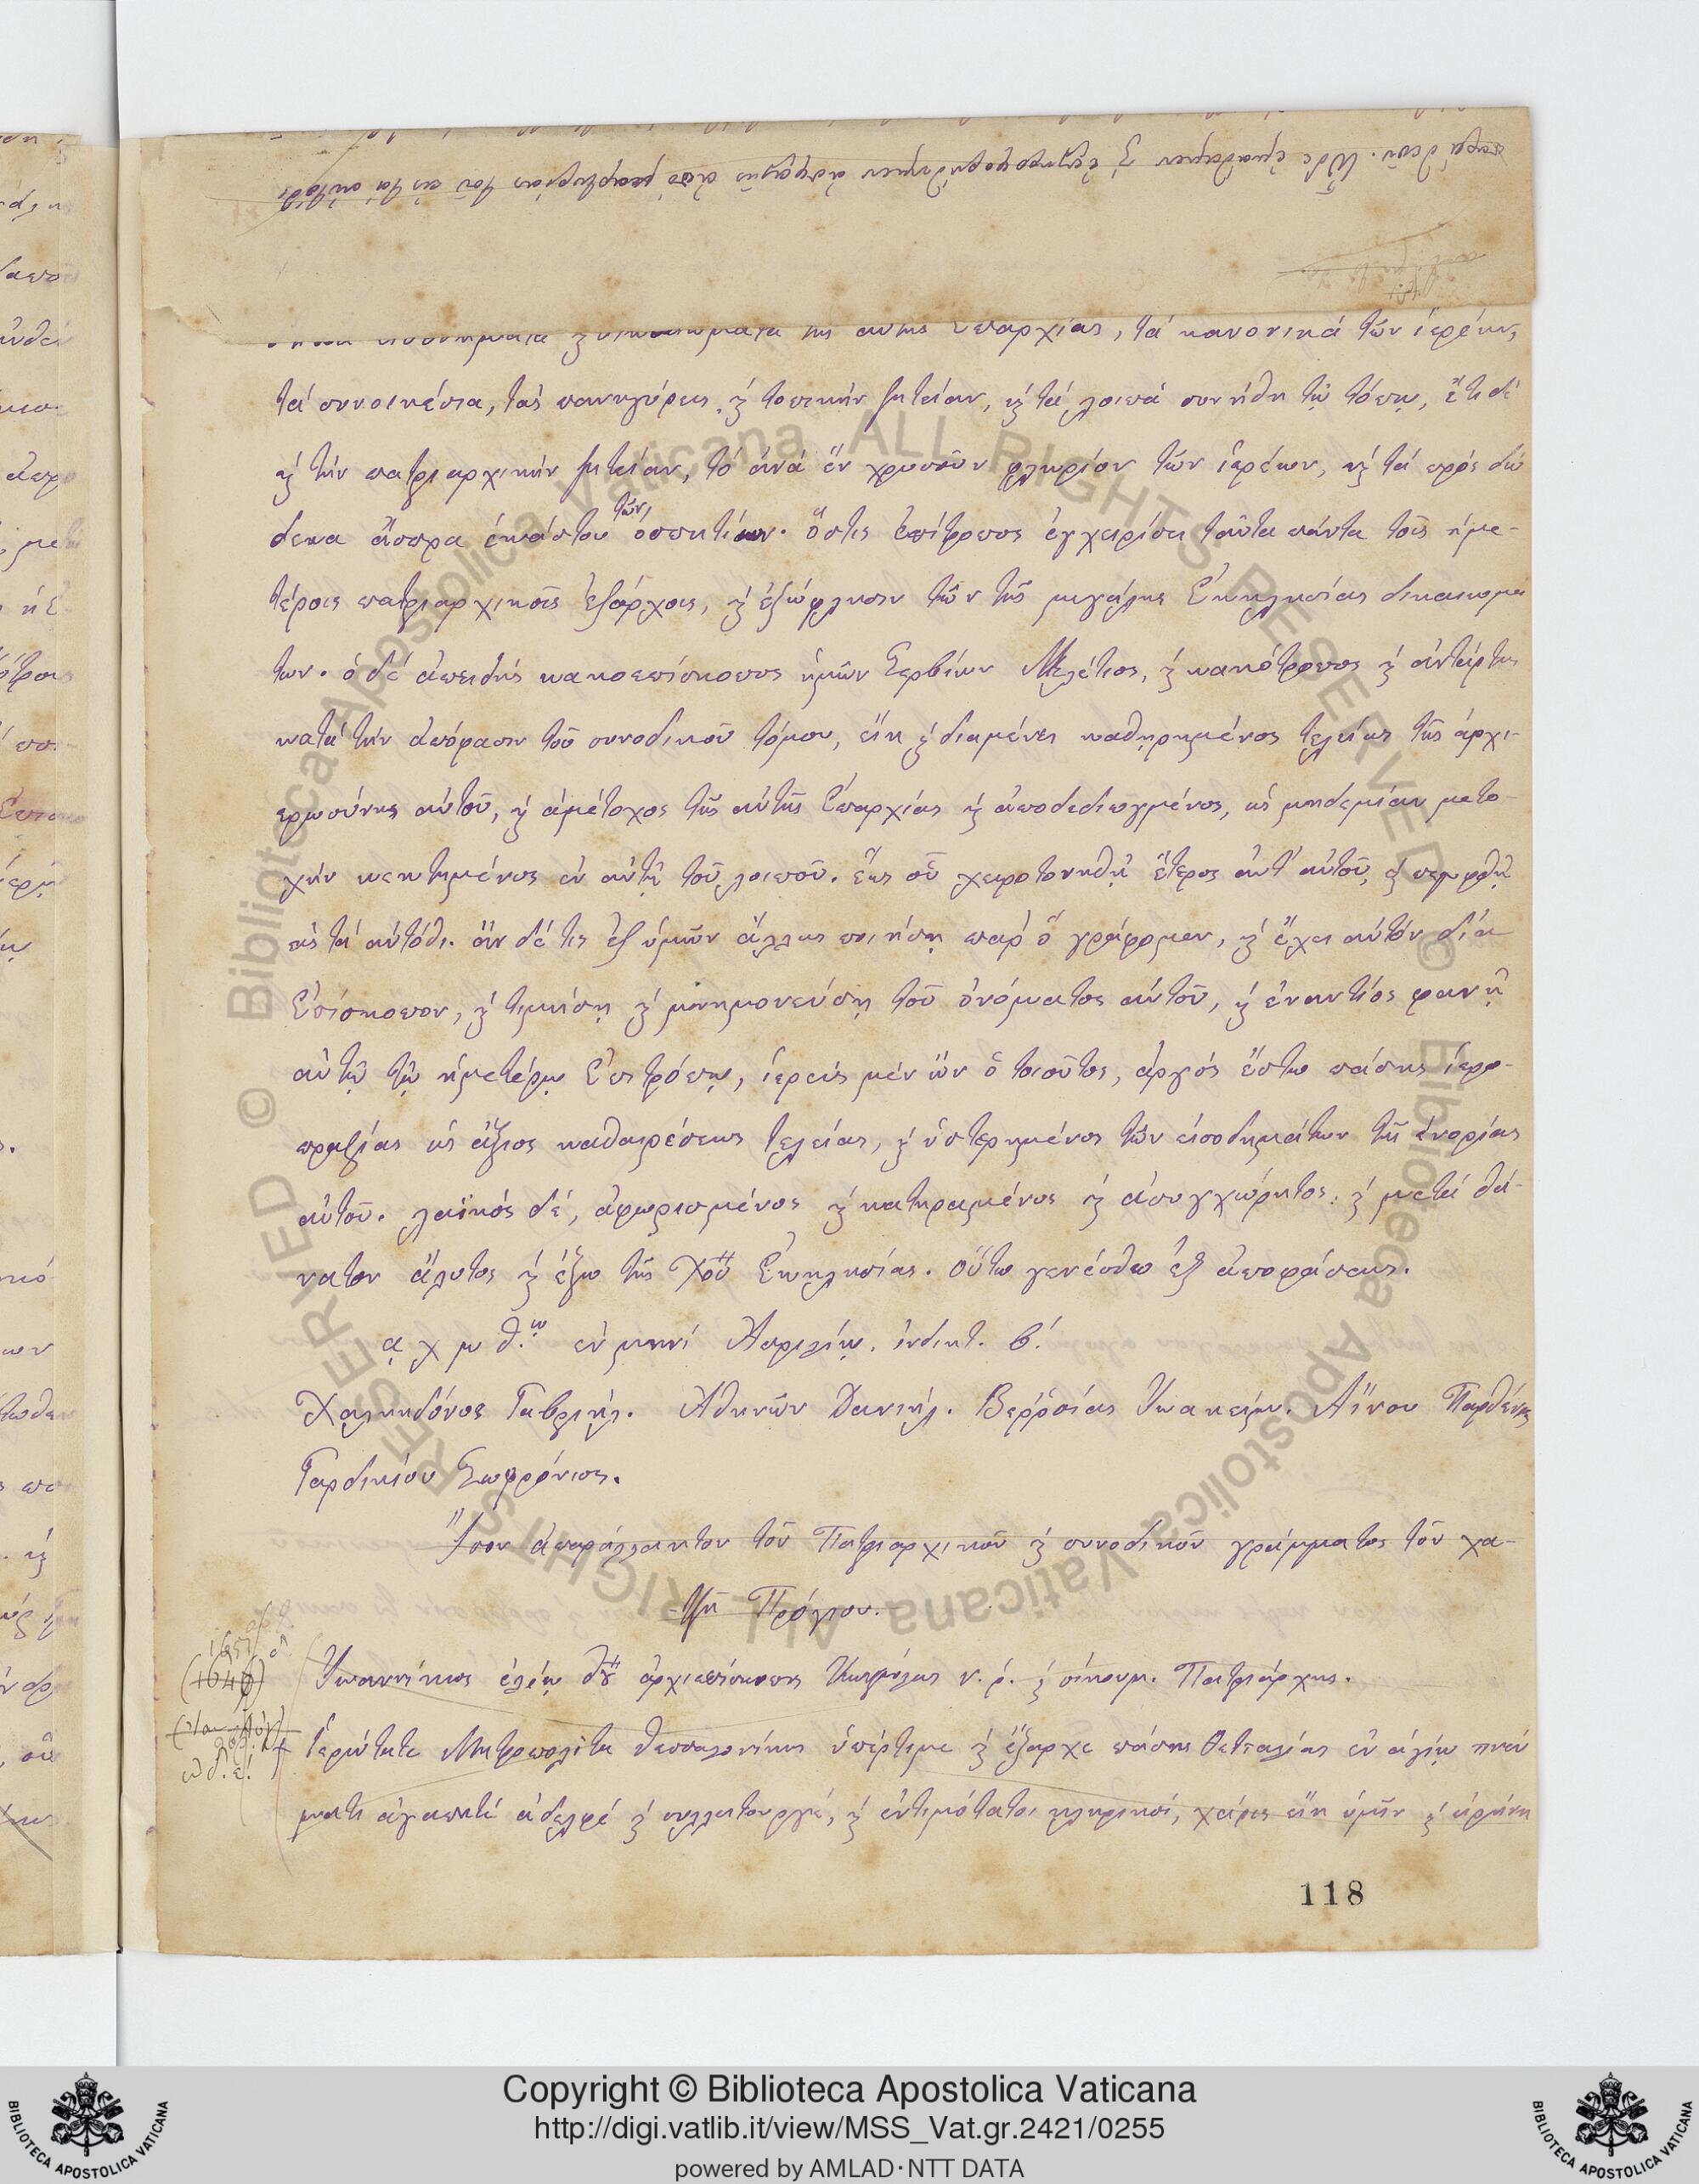 εἰσοδήματα καὶ δικαιώματα τῆς αὐτῆς Ἐπαρχίας, τὰ κανονικὰ τῶν ἱερέων,
τὰ συνοικέσια, τὰς πανηγύρεις, καὶ τοπικὴν ζητείαν, καὶ τὰ λοιπὰ συνήθη τῷ τόπῳ, ἔτι δὲ
καὶ τὴν πατριαρχικὴν ζητείαν, τὸ ἀνὰ ἓν χρυσοῦν φλωρίον τῶν ἱερέων, καὶ τὰ πρὸς δώ
δεκα ἄσπρα ἑκάστου τῶν ὁσπητίων. ὅστις ἐπίτροπος ἐγχειρίσει ταῦτα πάντα τοῖς ἡμε-
τέροις πατριαρχικοῖς ἐξάρχοις, καὶ ἐξώφλησιν τῶν τῆς μεγάλης Ἐκκλησίας δικαιωμά
των. ὁ δὲ ἀπειθὴς κακοεπίσκοπος ἡμῶν Σερβίων Μελέτιος, καὶ κακότροπος καὶ ἀντάρτης
κατὰ τὴν ἀπόφασιν τοῦ συνοδικοῦ τόμου, εἴη καὶ διαμένει καθῃρημένος τελείως τῆς ἀρχι-
ερωσύνης αὐτοῦ, καὶ ἀμέτοχος τῆς αὐτῆς Ἐπαρχίας καὶ ἀποδεδιωγμένος, ὡς μηδεμίαν μετο-
χὴν κεκτημένος ἐν αὐτῇ τοῦ λοιποῦ. ἕως οὗ χειροτονηθῇ ἕτερος ἀντ' αὐτοῦ, καὶ πεμφθῇ
εἰς τὰ αὐτόθι. ἂν δέ τις ἐξ ὑμῶν ἄλλως ποιήσῃ παρ' ὃ γράφομεν, καὶ ἔχει αὐτὸν διὰ
Ἐπίσκοπον, καὶ τιμήσῃ καὶ μνημονεύσῃ τοῦ ὀνόματος αὐτοῦ, καὶ ἐναντίος φανῇ
αὐτῷ τῷ ἡμετέρῳ Ἐπιτρόπῳ, ἱερεὺς μὲν ὢν ὁ τοιοῦτος, ἀργὸς ἔστω πάσης ἱερο-
πραξίας ὡς ἄξιος καθαιρέσεως τελείας, καὶ ὑστερημένος τῶν εἰσοδημάτων τῆς ἐνορίας
αὐτοῦ. λαϊκὸς δὲ, ἀφωρισμένος καὶ κατηραμένος καὶ ἀσυγχώρητος, καὶ μετὰ θά-
νατον ἄλυτος καὶ ἔξω τῆς Χοῦ Ἐκκλησίας. Οὕτω γενέσθω ἐξ ἀποφάσεως.
α χ μ θ.ῳ ἐν μηνὶ Ἀπριλίῳ. ἰνδικτ. β΄.
Χαλκηδόνος Γαβριήλ. Ἀθηνῶν Δανιήλ. Βερροίας Ἰωακείμ. Αἴνου Παρθένιος
Γαρδικίου Σωφρόνιος.
Ἴσον ἀπαράλλακτον τοῦ Πατριαρχικοῦ καὶ συνοδικοῦ γράμματος τοῦ χα-
τζῆ Πρόγιου.
Ἰωαννίκιος ἐλέῳ θῦ ἀρχιεπίσκοπος Κωνπόλεως ν. ρ. καὶ οἰκουμ. Πατριάρχης.
Ἱερώτατε Μητροπολῖτα Θεσσαλονίκης ὑπέρτιμε καὶ ἔξαρχε πάσης Θετταλίας ἐν ἁγίῳ πνεύ
ματι ἀγαπητὲ ἀδελφὲ καὶ συλλειτουργὲ, καὶ ἐντιμότατοι κληρικοὶ, χάρις εἴη ὑμῖν καὶ εἰρήνη
118
Copyright © Biblioteca Apostolica Vaticana
http://digi.vatlib.it/view/MSS_Vat.gr.2421/0255
powered by AMLAD·NTT DATA
BIBLIOTECA APOSTOLICA VATICANA
BIBLIOTECA APOSTOLICA VATICANA